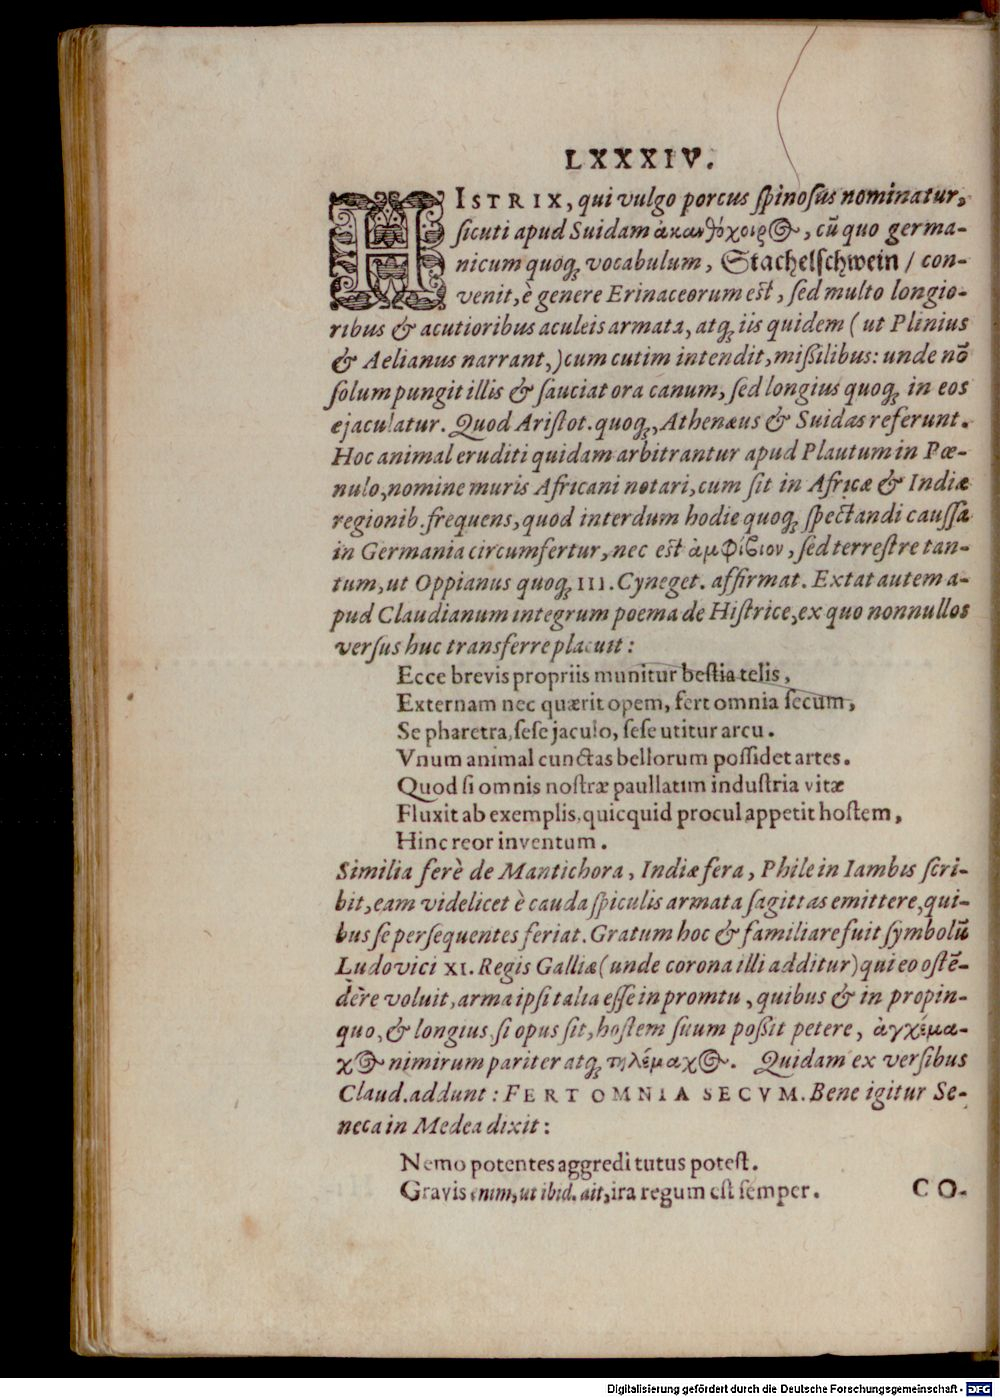 LXXXIV.
HISTRIX, qui vulgo porcus ſpinoſus nominatur,
ſicuti apud Suidam ἀκανθόχοιρος, cū quo germa-
nicum quoq; vocabulum, Stachelſchwein / con-
venit, è genere Erinaceorum eſt, ſed multo longio-
ribus & acutioribus aculeis armata, atq; iis quidem (ut Plinius
& Aelianus narrant,) cum cutim intendit, miſsilibus: unde nō
ſolum pungit illis & ſauciat ora canum, ſed longius quoq; in eos
ejaculatur. Quod Ariſtot. quoq;, Athenæus & Suidas referunt.
Hoc animal eruditi quidam arbitrantur apud Plautum in Pœ-
nulo, nomine muris Africani notari, cum ſit in Africæ & Indiæ
regionib. frequens, quod interdum hodie quoq; ſpectandi cauſſa
in Germania circumfertur, nec eſt ἀμφίβιον, ſed terreſtre tan-
tum, ut Oppianus quoq; III. Cyneget. affirmat. Extat autem a-
pud Claudianum integrum poema de Hiſtrice, ex quo nonnullos
verſus huc transferre placuit:
Ecce brevis propriis munitur beſtia telis,
Externam nec quærit opem, fert omnia ſecum,
Se pharetra, ſeſe jaculo, ſeſe utitur arcu.
Vnum animal cunctas bellorum poſſidet artes.
Quod ſi omnis noſtræ paullatim induſtria vitæ
Fluxit ab exemplis, quicquid procul appetit hoſtem,
Hinc reor inventum.
Similia ferè de Mantichora, Indiæ fera, Phile in Iambis ſcri-
bit, eam videlicet è cauda ſpiculis armata ſagittas emittere, qui-
bus ſe perſequentes feriat. Gratum hoc & familiare fuit ſymbolū
Ludovici XI. Regis Galliæ (unde corona illi additur) qui eo oſtē-
dère voluit, arma ipſi talia eſſe in promtu, quibus & in propin-
quo, & longius, ſi opus ſit, hoſtem ſuum poſsit petere, ἀγχέμα-
χος nimirum pariter atq; τηλέμαχος. Quidam ex verſibus
Claud. addunt: FERT OMNIA SECVM. Bene igitur Se-
neca in Medea dixit:
Nemo potentes aggredi tutus poteſt.
Gravis enim, ut ibid. ait, ira regum eſt ſemper. CO-
Digitalisierung gefördert durch die Deutsche Forschungsgemeinschaft - DFG